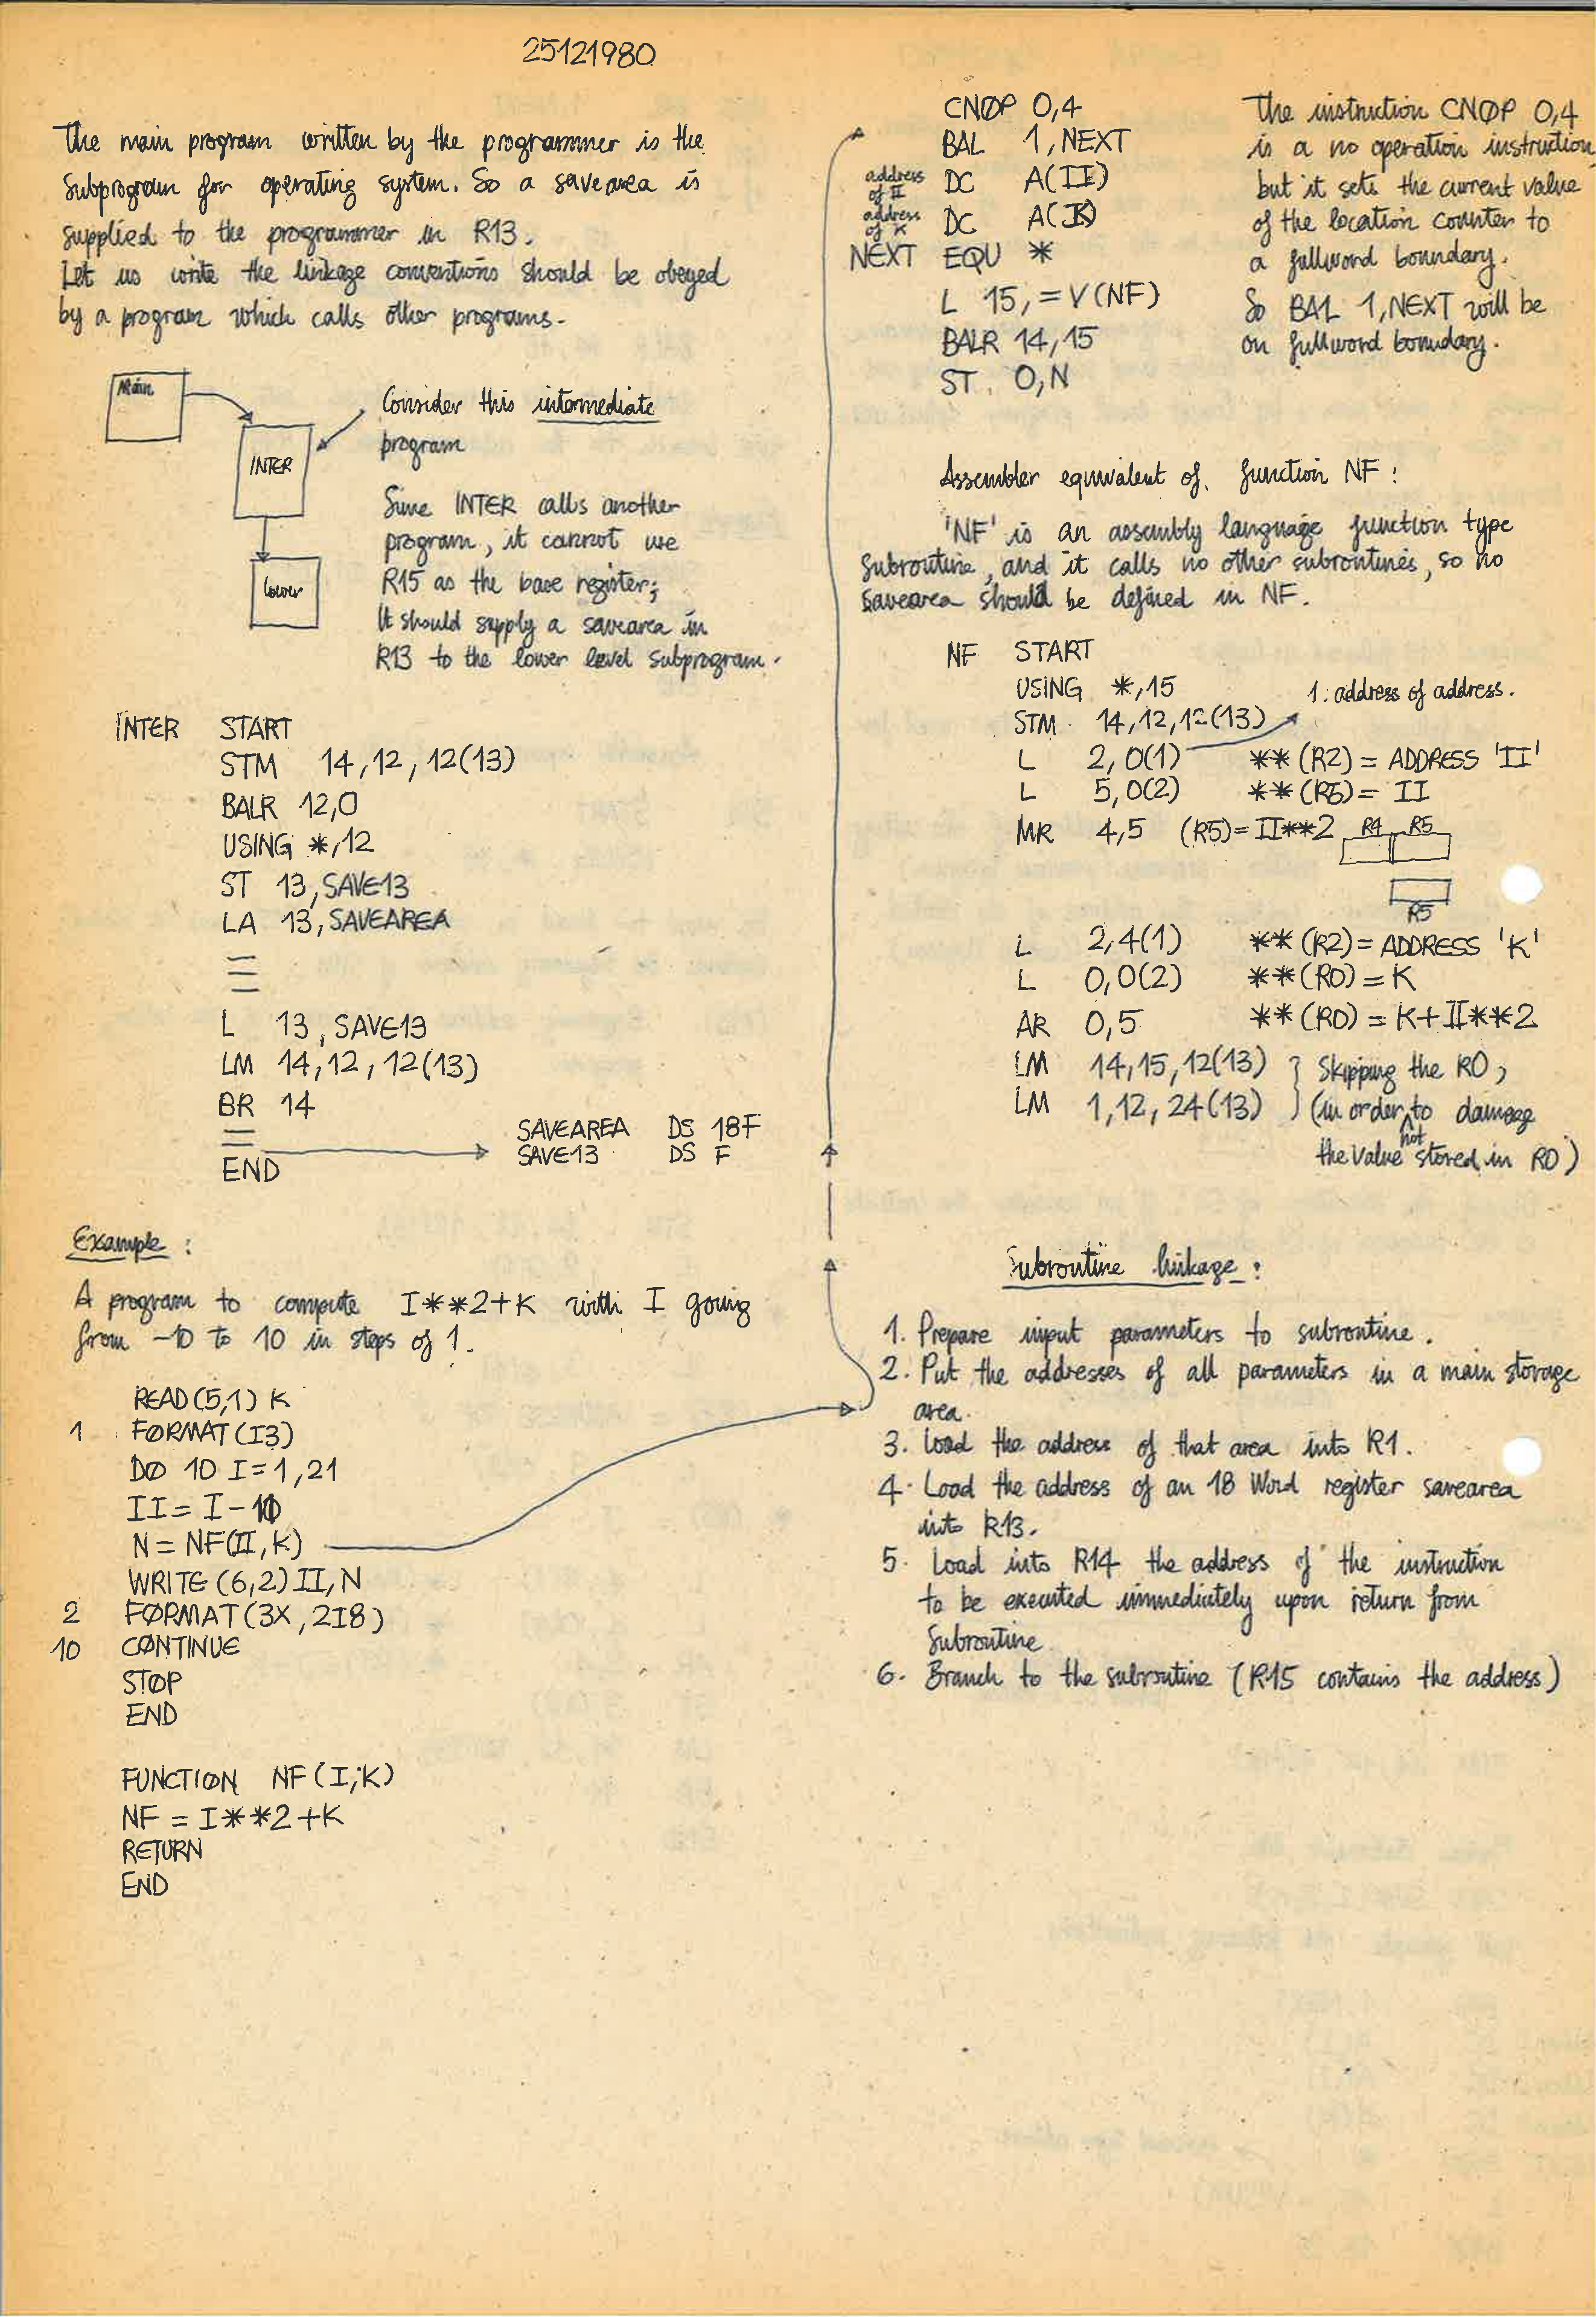 25121980
The main program written by the programmer is the
Subprogram for operating system. So a savearea is
supplied to the programmer in R13.
Let us write the linkage conventions should be obeyed
by a program which calls other programs.
Main
INTER
Lower
Consider this intermediate
program
Since INTER calls another
program, it cannot use
R15 as the base register;
It should supply a savearea in
R13 to the lower level subprogram.
INTER START
STM 14,12,12(13)
BALR 12,0
USING *,12
ST 13,SAVE13
LA 13,SAVEAREA
L 13,SAVE13
LM 14,12,12(13)
BR 14
END
SAVEAREA DS 18F
SAVE13 DS F
Example :
A program to compute I**2+K with I going
from -10 to 10 in steps of 1.
READ(5,1) K
1 FØRMAT(I3)
DØ 10 I=1,21
II=I-10
N=NF(II,K)
WRITE(6,2)II,N
2 FØRMAT(3X,2I8)
10 CØNTINUE
STØP
END
FUNCTIØN NF(I,K)
NF = I**2+K
RETURN
END
CNØP 0,4
BAL 1,NEXT
address of II DC A(II)
address of K DC A(K)
NEXT EQU *
L 15,=V(NF)
BALR 14,15
ST 0,N
The instruction CNØP 0,4
is a no operation instruction
but it sets the current value
of the location counter to
a fullword boundary.
So BAL 1,NEXT will be
on fullword boundary.
Assembler equivalent of function NF :
'NF' is an assembly language function type
Subroutine, and it calls no other subroutines, so no
savearea should be defined in NF.
NF START
USING *,15
1: address of address.
STM 14,12,12(13)
L 2,0(1) **(R2)= ADDRESS 'II'
L 5,0(2) **(R5)= II
MR 4,5 (R5)=II**2 R4 R5
R5
L 2,4(1) **(R2)= ADDRESS 'K'
L 0,0(2) **(R0)=K
AR 0,5 **(R0)=K+II**2
LM 14,15,12(13) } Skipping the R0,
LM 1,12,24(13) } (in order not to damage
the value stored in R0)
Subroutine linkage :
1. Prepare input parameters to subroutine.
2. Put the addresses of all parameters in a main storage
area.
3. Load the address of that area into R1.
4. Load the address of an 18 Word register savearea
into R13.
5. Load into R14 the address of the instruction
to be executed immediately upon return from
Subroutine
6. Branch to the subroutine (R15 contains the address)